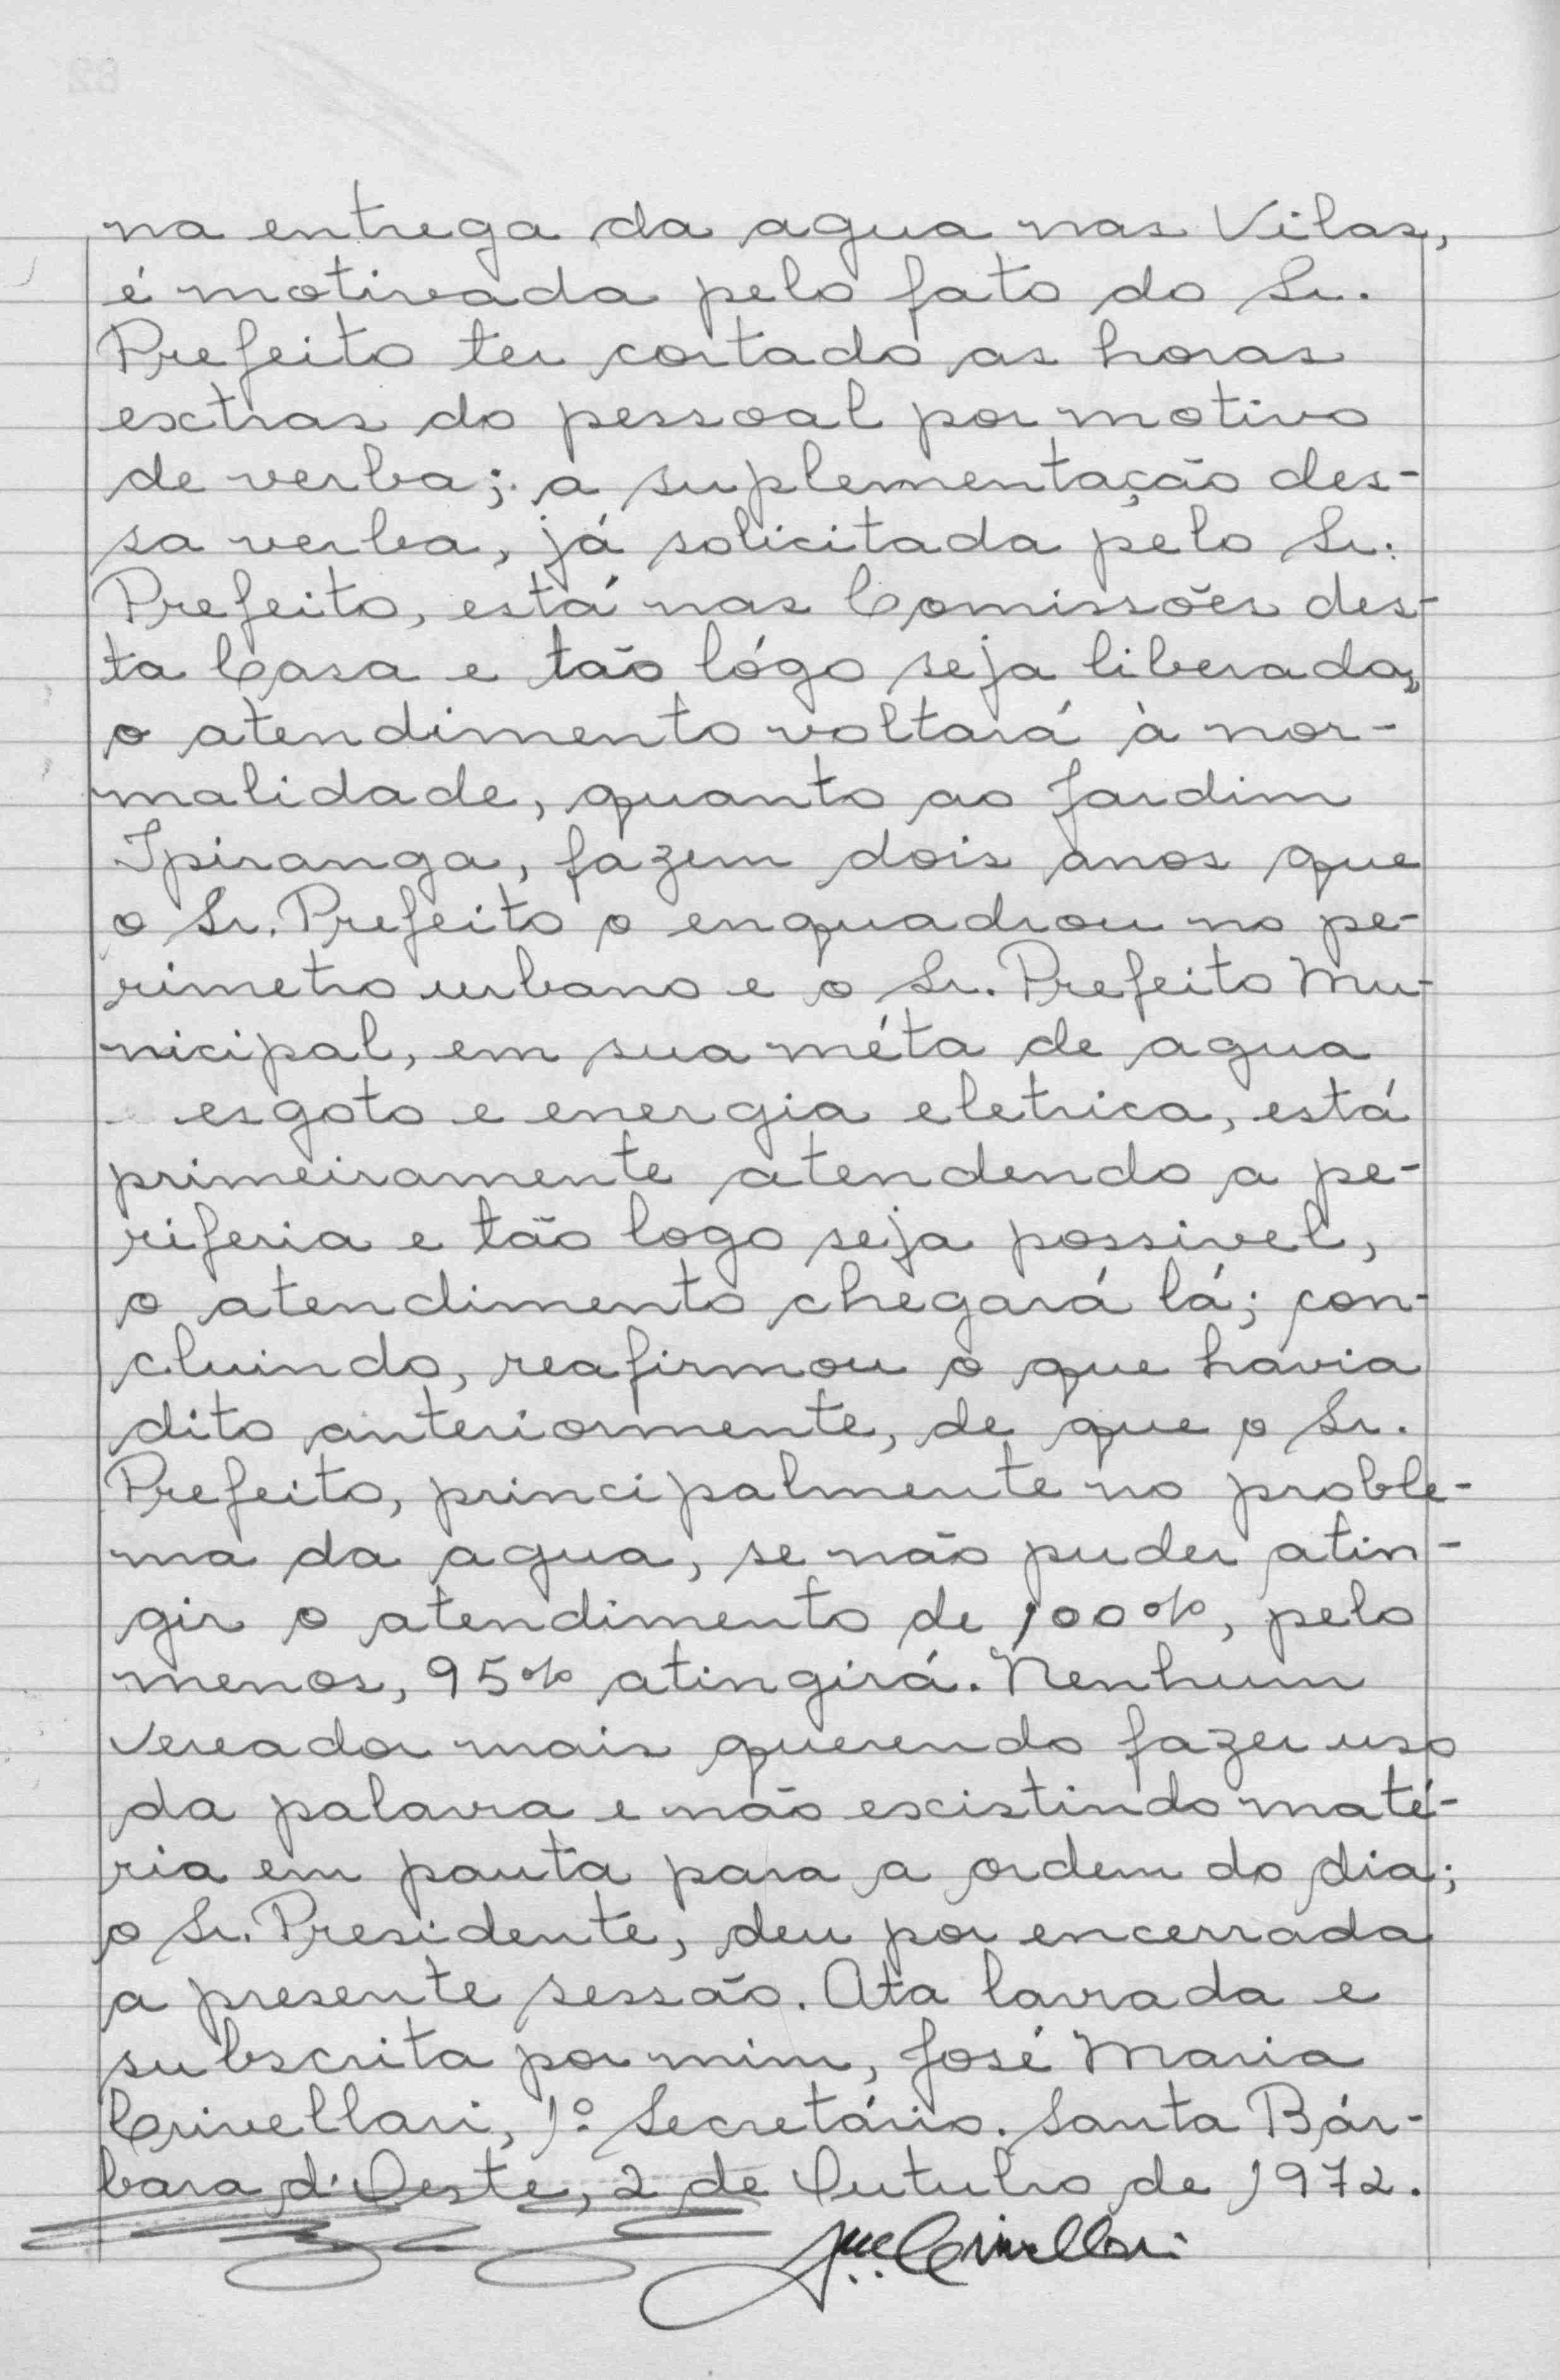 na entrega da agua nas Vilas,
é motivada pelo fato do Sr.
Prefeito ter cortado as horas
extras do pessoal por motivo
de verba; a suplementação des-
sa verba, já solicitada pelo Sr.
Prefeito, está nas Comissões des-
ta Casa e tão lógo seja liberada,
o atendimento voltará à nor-
malidade, quanto ao Jardim
Ipiranga, fazem dois anos que
o Sr. Prefeito o enquadrou no pe-
rimetro urbano e o Sr. Prefeito Mu-
nicipal, em sua méta de agua
esgoto e energia eletrica, está
primeiramente atendendo a pe-
riferia e tão logo seja possivel,
o atendimento chegará lá; con-
cluindo, reafirmou o que havia
dito anteriormente, de que o Sr.
Prefeito, principalmente no proble-
ma da agua, se não puder atin-
gir o atendimento de 100%, pelo
menos, 95% atingirá. Nenhum
Vereador mais querendo fazer uso
da palavra e não existindo maté-
ria em pauta para a ordem do dia;
o Sr. Presidente, deu por encerrada
a presente sessão. Ata lavrada e
subscrita por mim, José Maria
Crivellari, 1º Secretário. Santa Bár-
bara d'Oeste, 2 de Outubro de 1972.